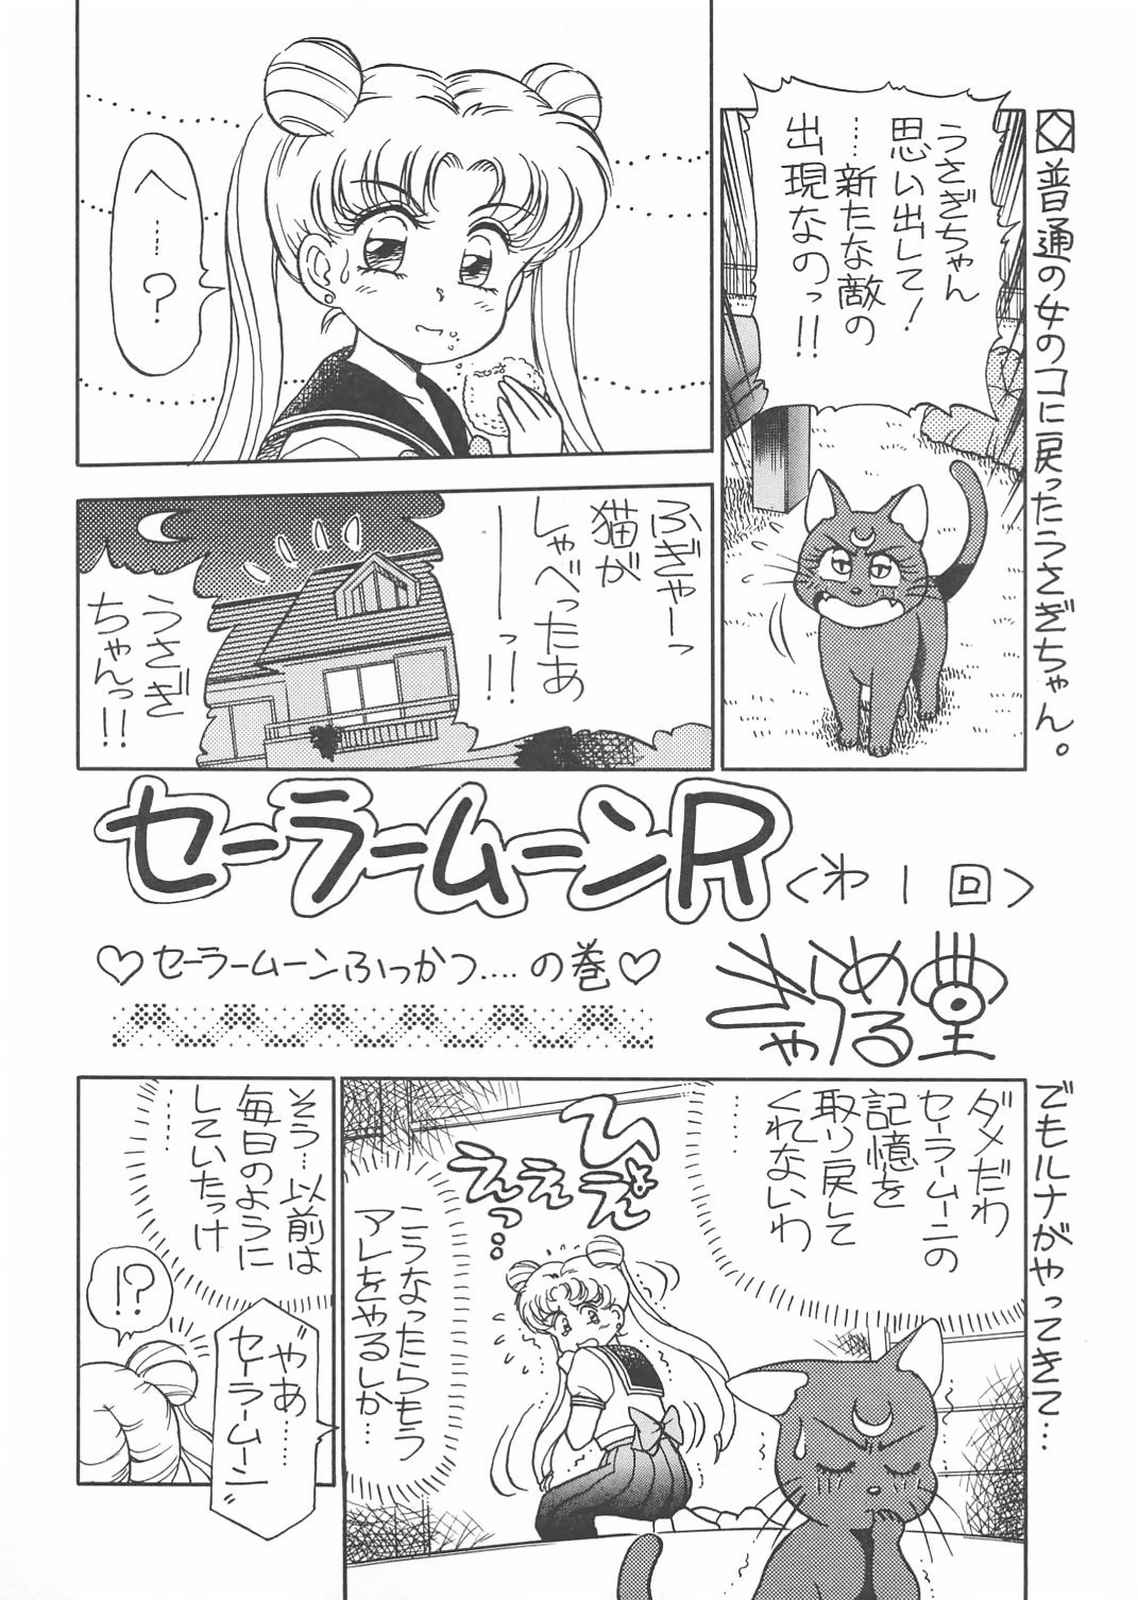 ◇普通の女のコに戻ったうさぎちゃん。
うさぎちゃん
思い出して!
……新たな敵の
出現なのっ!!
へ……?
ふぎゃーっ
猫が
しゃべったあ
ーーっ!!
うさぎ
ちゃんっ!!
セーラームーンR
<オ1回>
♡セーラームーンふっかつ....の巻♡
きゃらめる堂
でもルナがやってきて…
ダメだわ
セーラームーンの
記憶を
取り戻して
くれないわ
……
ひぇぇ
えぇぇ
っ…
こうなったらもう
アレをやるしか…
そう…以前は
毎日のように
していたっけ
……
"やあ…
セーラームーン"
!?